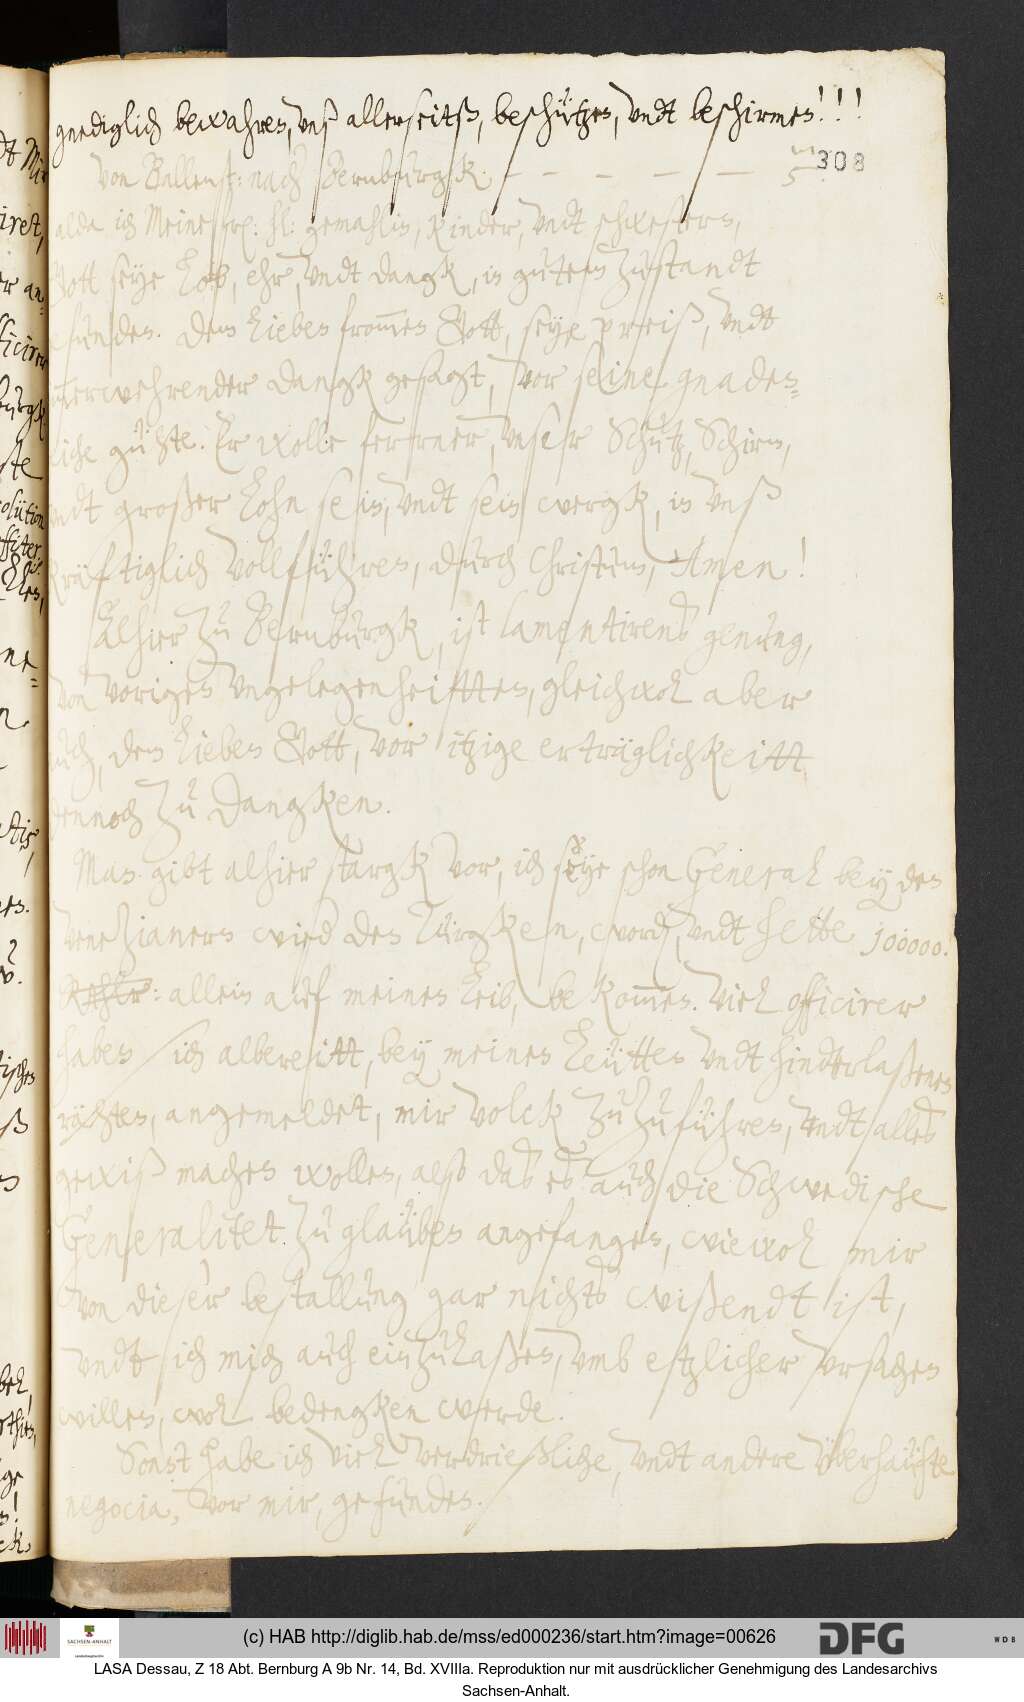 gnediglich bewahren, vnß allerseitß, beschützen, vndt beschirmen!!!
308
Von Ballenst: nach Bernburgk. – – – – – 5
alda ich Meine frl: hl: gemahlin, Kinder, vndt schwestern,
Gott seye Lob, ehr, vndt dangk, in gutem zustandt
efunden. Dem Lieben frommen Gott, seye preiß, vndt
merwehrender dangk gesagt, vor seine gnaden=
liche gühte. Er wolle ferrner, vnser Schutz, Schirm,
vndt großer Lohn sein, vndt sein wergk, in vnß
kräftiglich vollführen, durch Christum, Amen!
Alhier zu Bernburgk, ist lamentirens genung,
von vorigen vngelegenheitten, gleichwol aber
auch, dem Lieben Gott, vor itzige erträglichkeitt
dennoch zu dangken.
Man gibt alhier stargk vor, ich seye schon General bey den
Venezianern wied den Türgken, word, vndt hette 100000.
Rthlr: allein auf meinen Leib, bekommen. Viel officirer
haben sich albereitt, bey meinen Leütten vndt hinderlaßenen
rähten, angemeldet, mir volck zu zuführen, vndt alles
gewiß machen wollen, also das es auch die Schwedische
Generalitet zu glaüben angefangen, wiewol mir
von dieser bestallung gar nichts wißendt ist,
vndt ich mich auch einzulaßen, vmb etzlicher vrsachen
willen, wol bedengken werde.
Sonst habe ich viel verdrießliche, vndt andere überhaüfte
negocia, vor mir, gefunden.
(c) HAB http://diglib.hab.de/mss/ed000236/start.htm?image=00626
SACHSEN-ANHALT
DFG
WDB
LASA Dessau, Z 18 Abt. Bernburg A 9b Nr. 14, Bd. XVIIIa. Reproduktion nur mit ausdrücklicher Genehmigung des Landesarchivs
Sachsen-Anhalt.